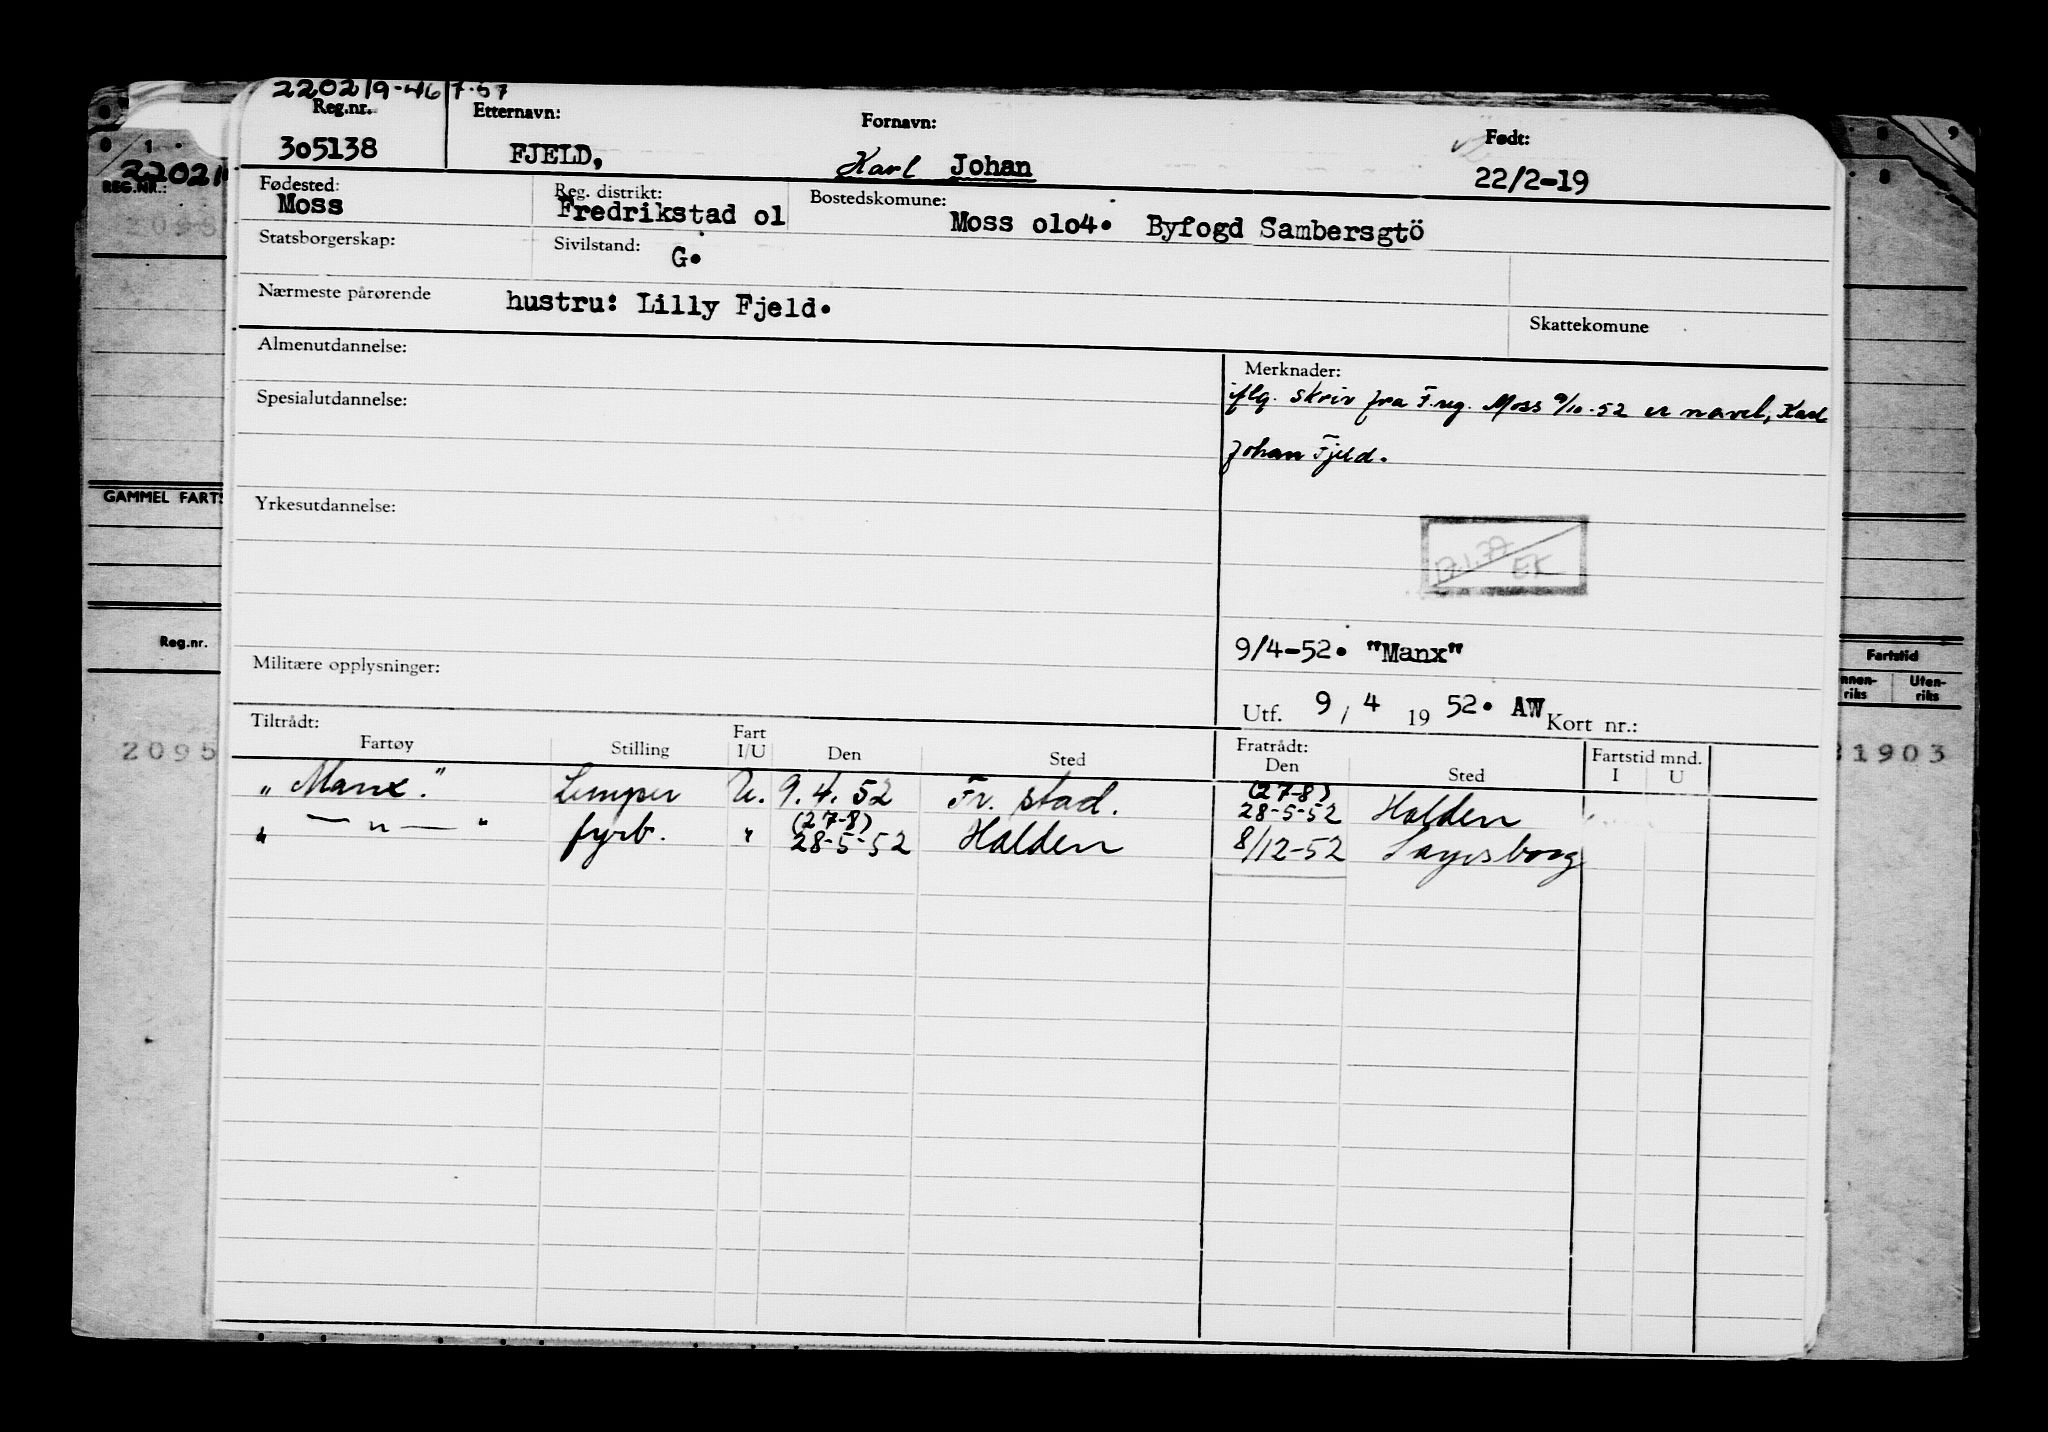 220219-46 7.57
Reg.nr. Etternavn: Fornavn: Født:
305138 FJELD, Karl Johan 22/2-19
Fødested: Reg. distrikt: Bostedskomune:
Moss Fredrikstad ol Moss olo4. Byfogd Sambersgtö
Statsborgerskap: Sivilstand: G.
Nærmeste pårørende hustru: Lilly Fjeld.
Skattekomune
Almenutdannelse:
Merknader:
iflg. skriv fra F.reg. Moss 9/10-52 er navet, Karl
Johan Fjeld.
Spesialutdannelse:
Yrkesutdannelse:
EK
9/4-52. "Manx"
Militære opplysninger:
Utf. 9 / 4 19 52. AW Kort nr.:
Tiltrådt: Fratrådt: Fartstid mnd.
Fartøy Stilling Fart I/U Den Sted Den Sted I U
"Manx." Lemper U. 9.4.52 Fr.stad. (27-8) 28-5-52 Halden
" — " — " fyrb. " (27-8) 28-5-52 Halden 8/12-52 Sarpsborg
0 1
22021
REG.NR.:
2095
GAMMEL FARTS
Reg.nr.
2095
8 9
8
Fartstid
nnen-riks Uten-riks
21903